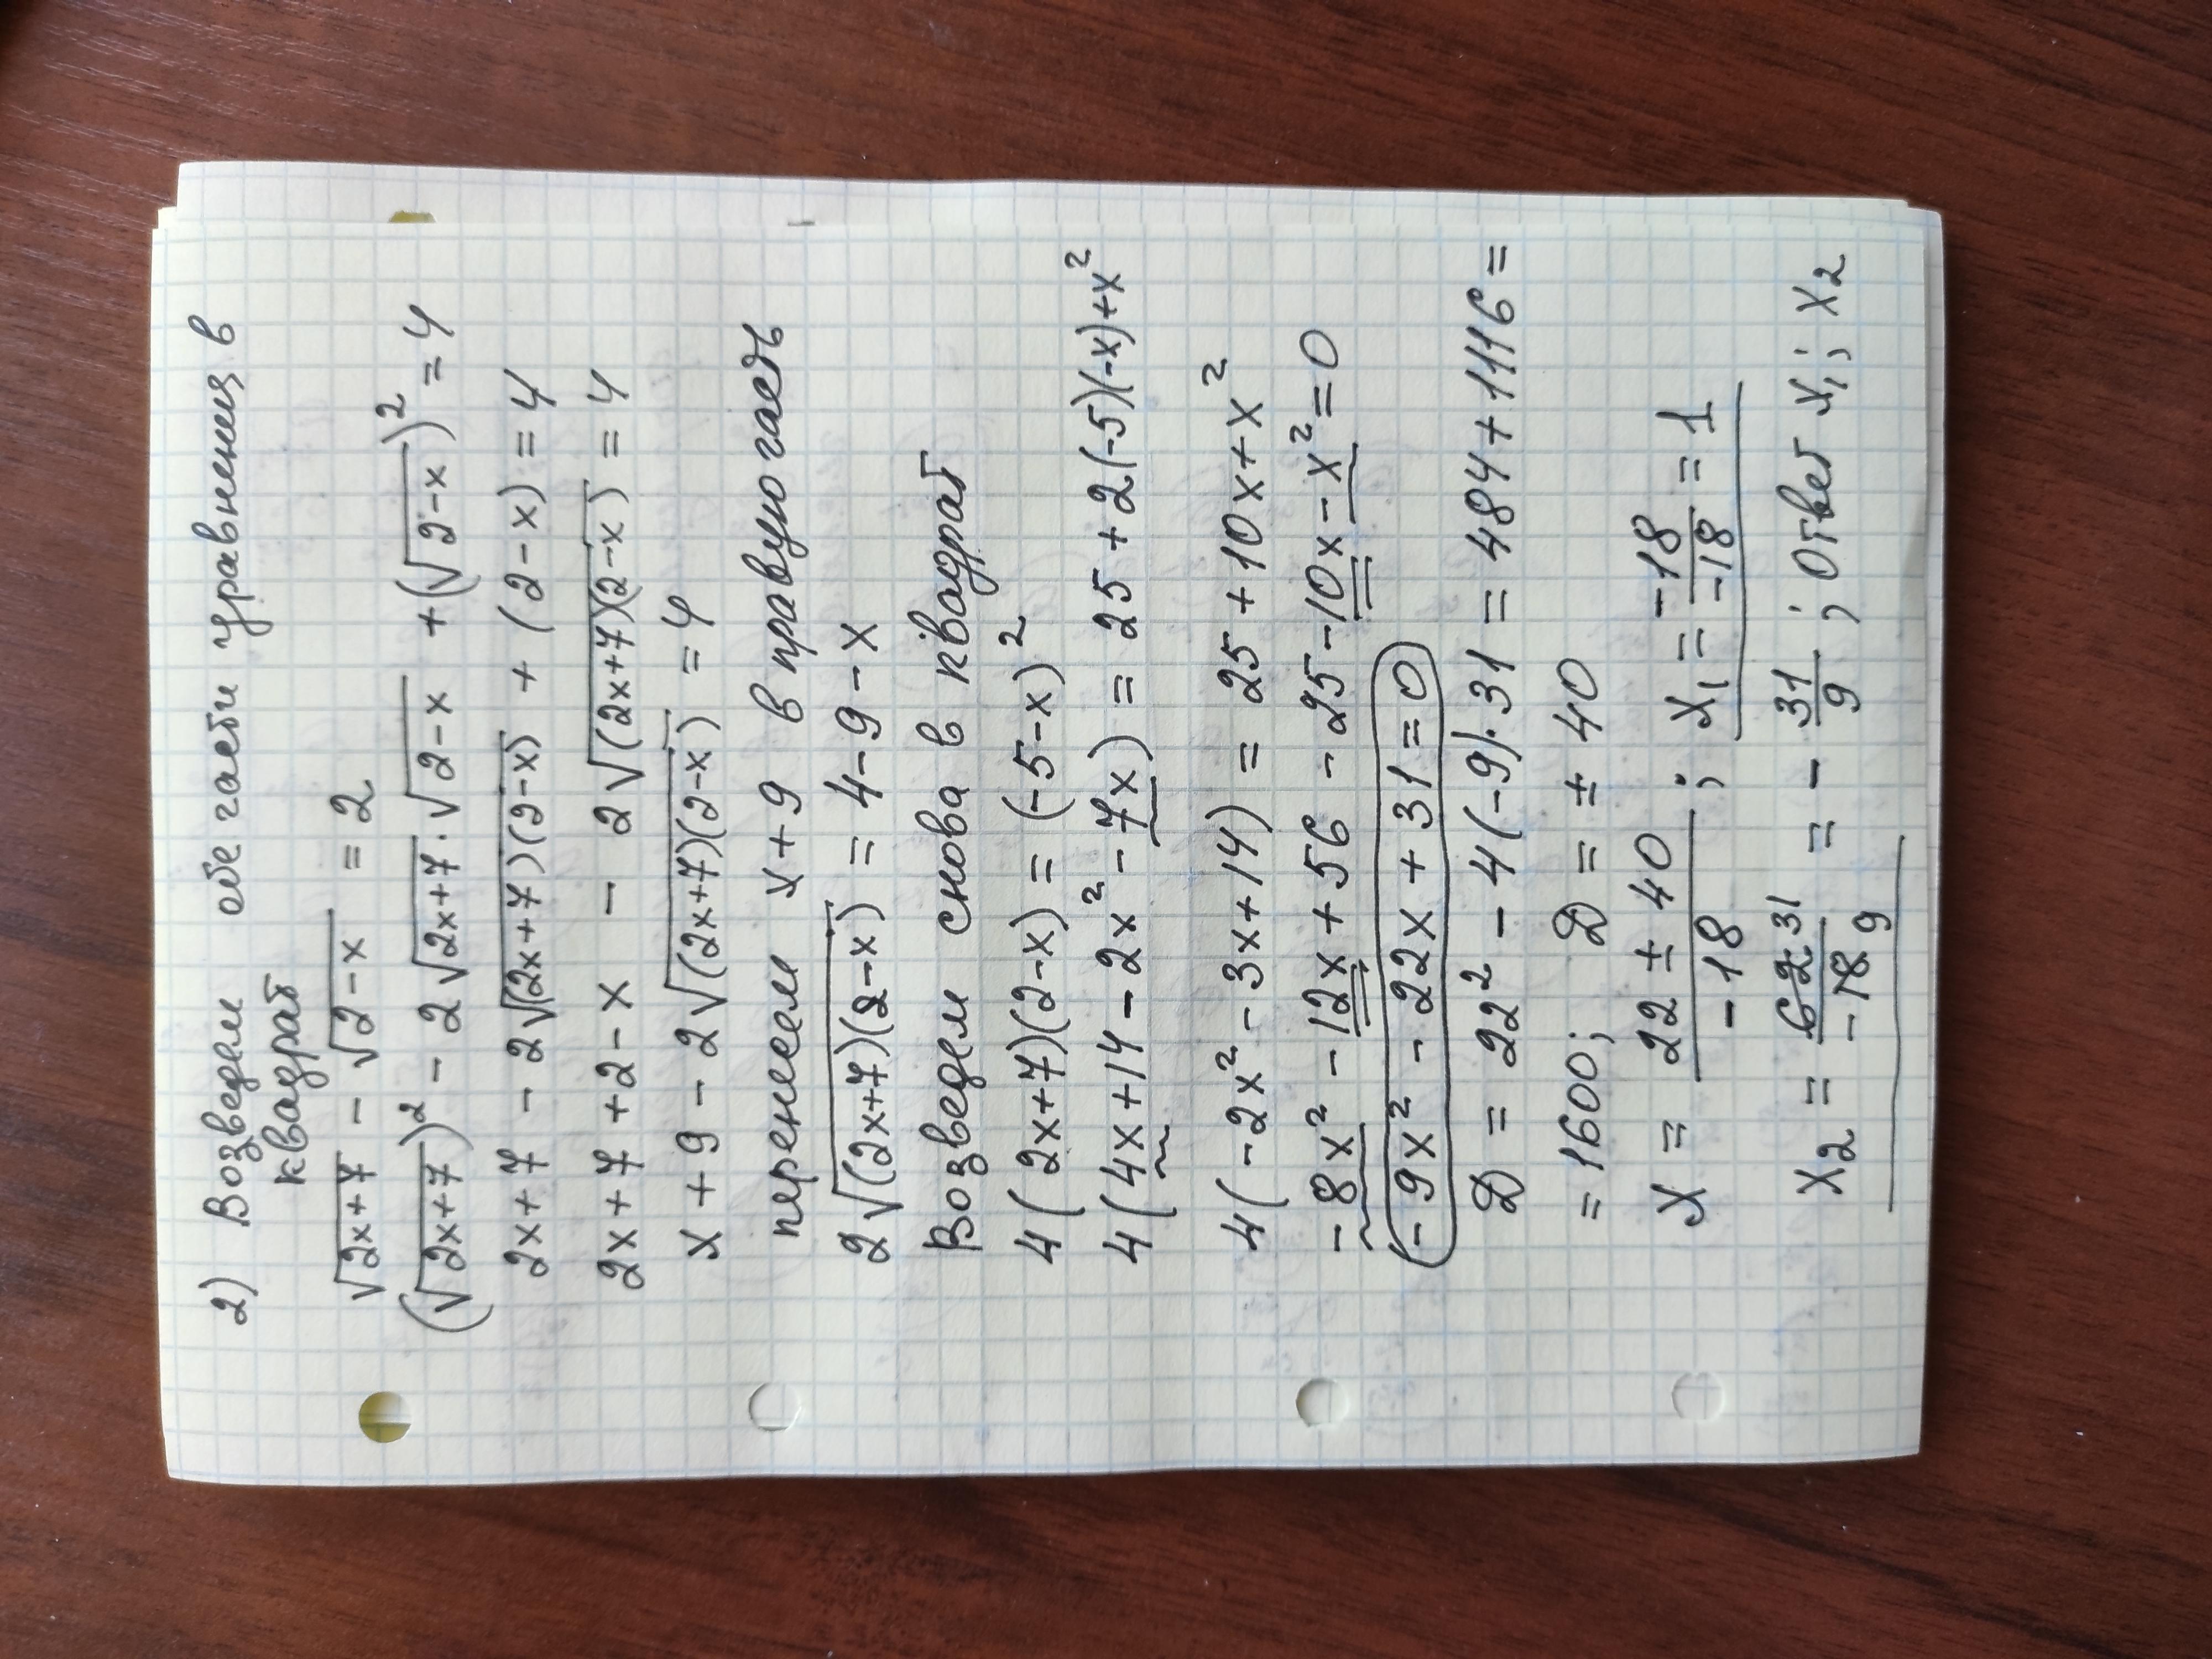 2) Возведем обе части уравнения в
квадрат
√2x+7 - √2-x = 2
(√2x+7)² - 2√2x+7·√2-x + (√2-x)² = 4
2x+7 - 2√(2x+7)(2-x) + (2-x) = 4
2x+7+2-x - 2√(2x+7)(2-x) = 4
x+9 - 2√(2x+7)(2-x) = 4
перенесем x+9 в правую часть
2√(2x+7)(2-x) = 4-9-x
Возведем снова в квадрат
4(2x+7)(2-x) = (-5-x)²
4(4x+14-2x²-7x) = 25+2(-5)(-x)+x²
4(-2x²-3x+14) = 25+10x+x²
-8x²-12x+56-25-10x-x²=0
-9x²-22x+31=0
D = 22²-4(-9)·31 = 484+1116 =
= 1600; D = ±40
x = 22±40/-18 ; x₁ = -18/-18 = 1
x₂ = 62 31/-18 9 = - 31/9 ; Ответ x₁; x₂